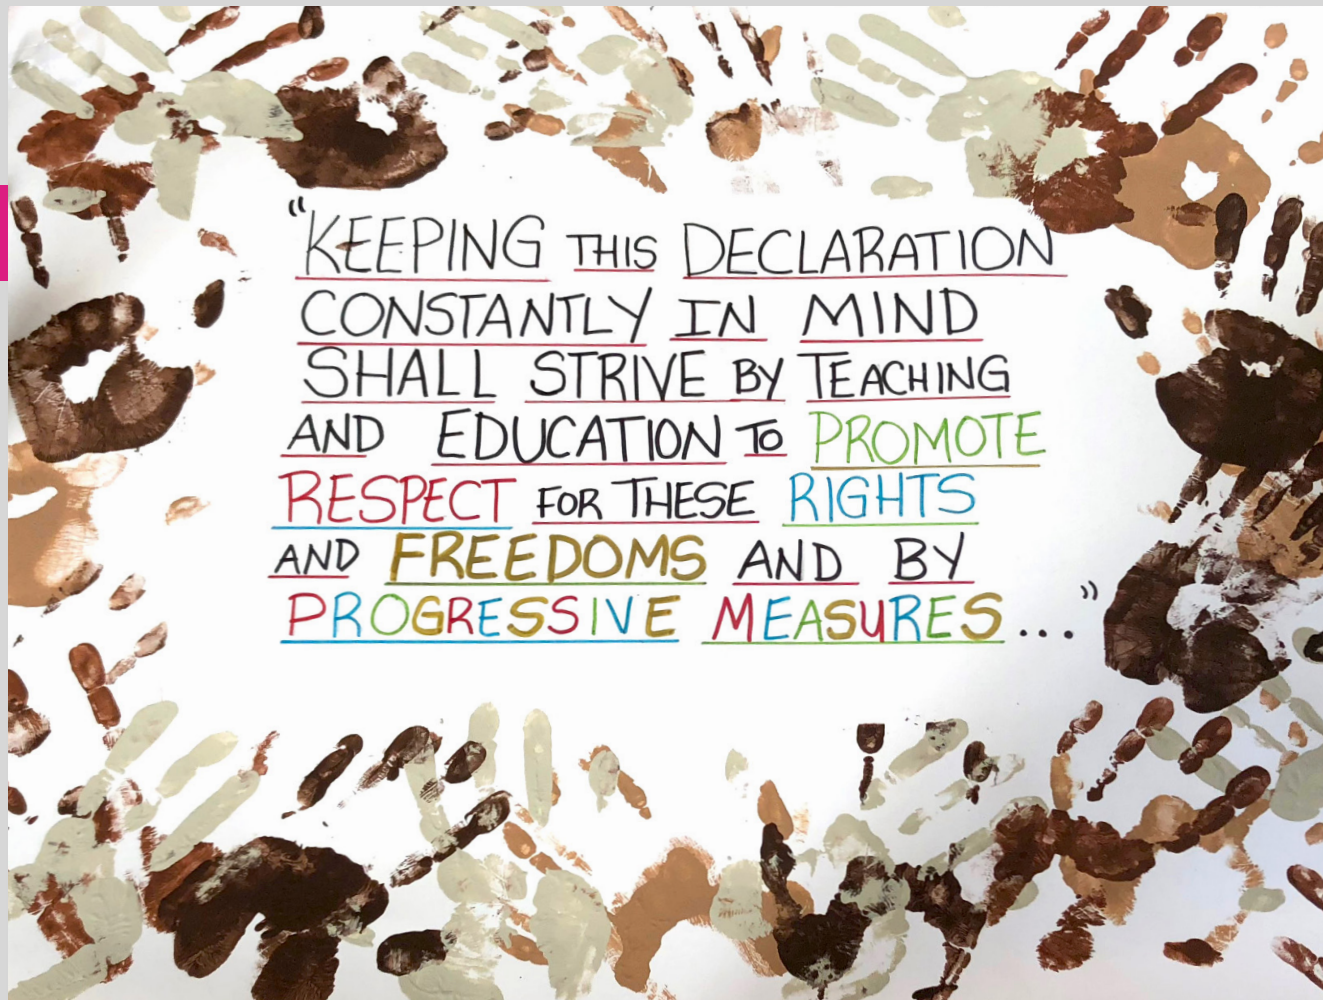 "KEEPING THIS DECLARATION
CONSTANTLY IN MIND
SHALL STRIVE BY TEACHING
AND EDUCATION TO PROMOTE
RESPECT FOR THESE RIGHTS
AND FREEDOMS AND BY
PROGRESSIVE MEASURES..."